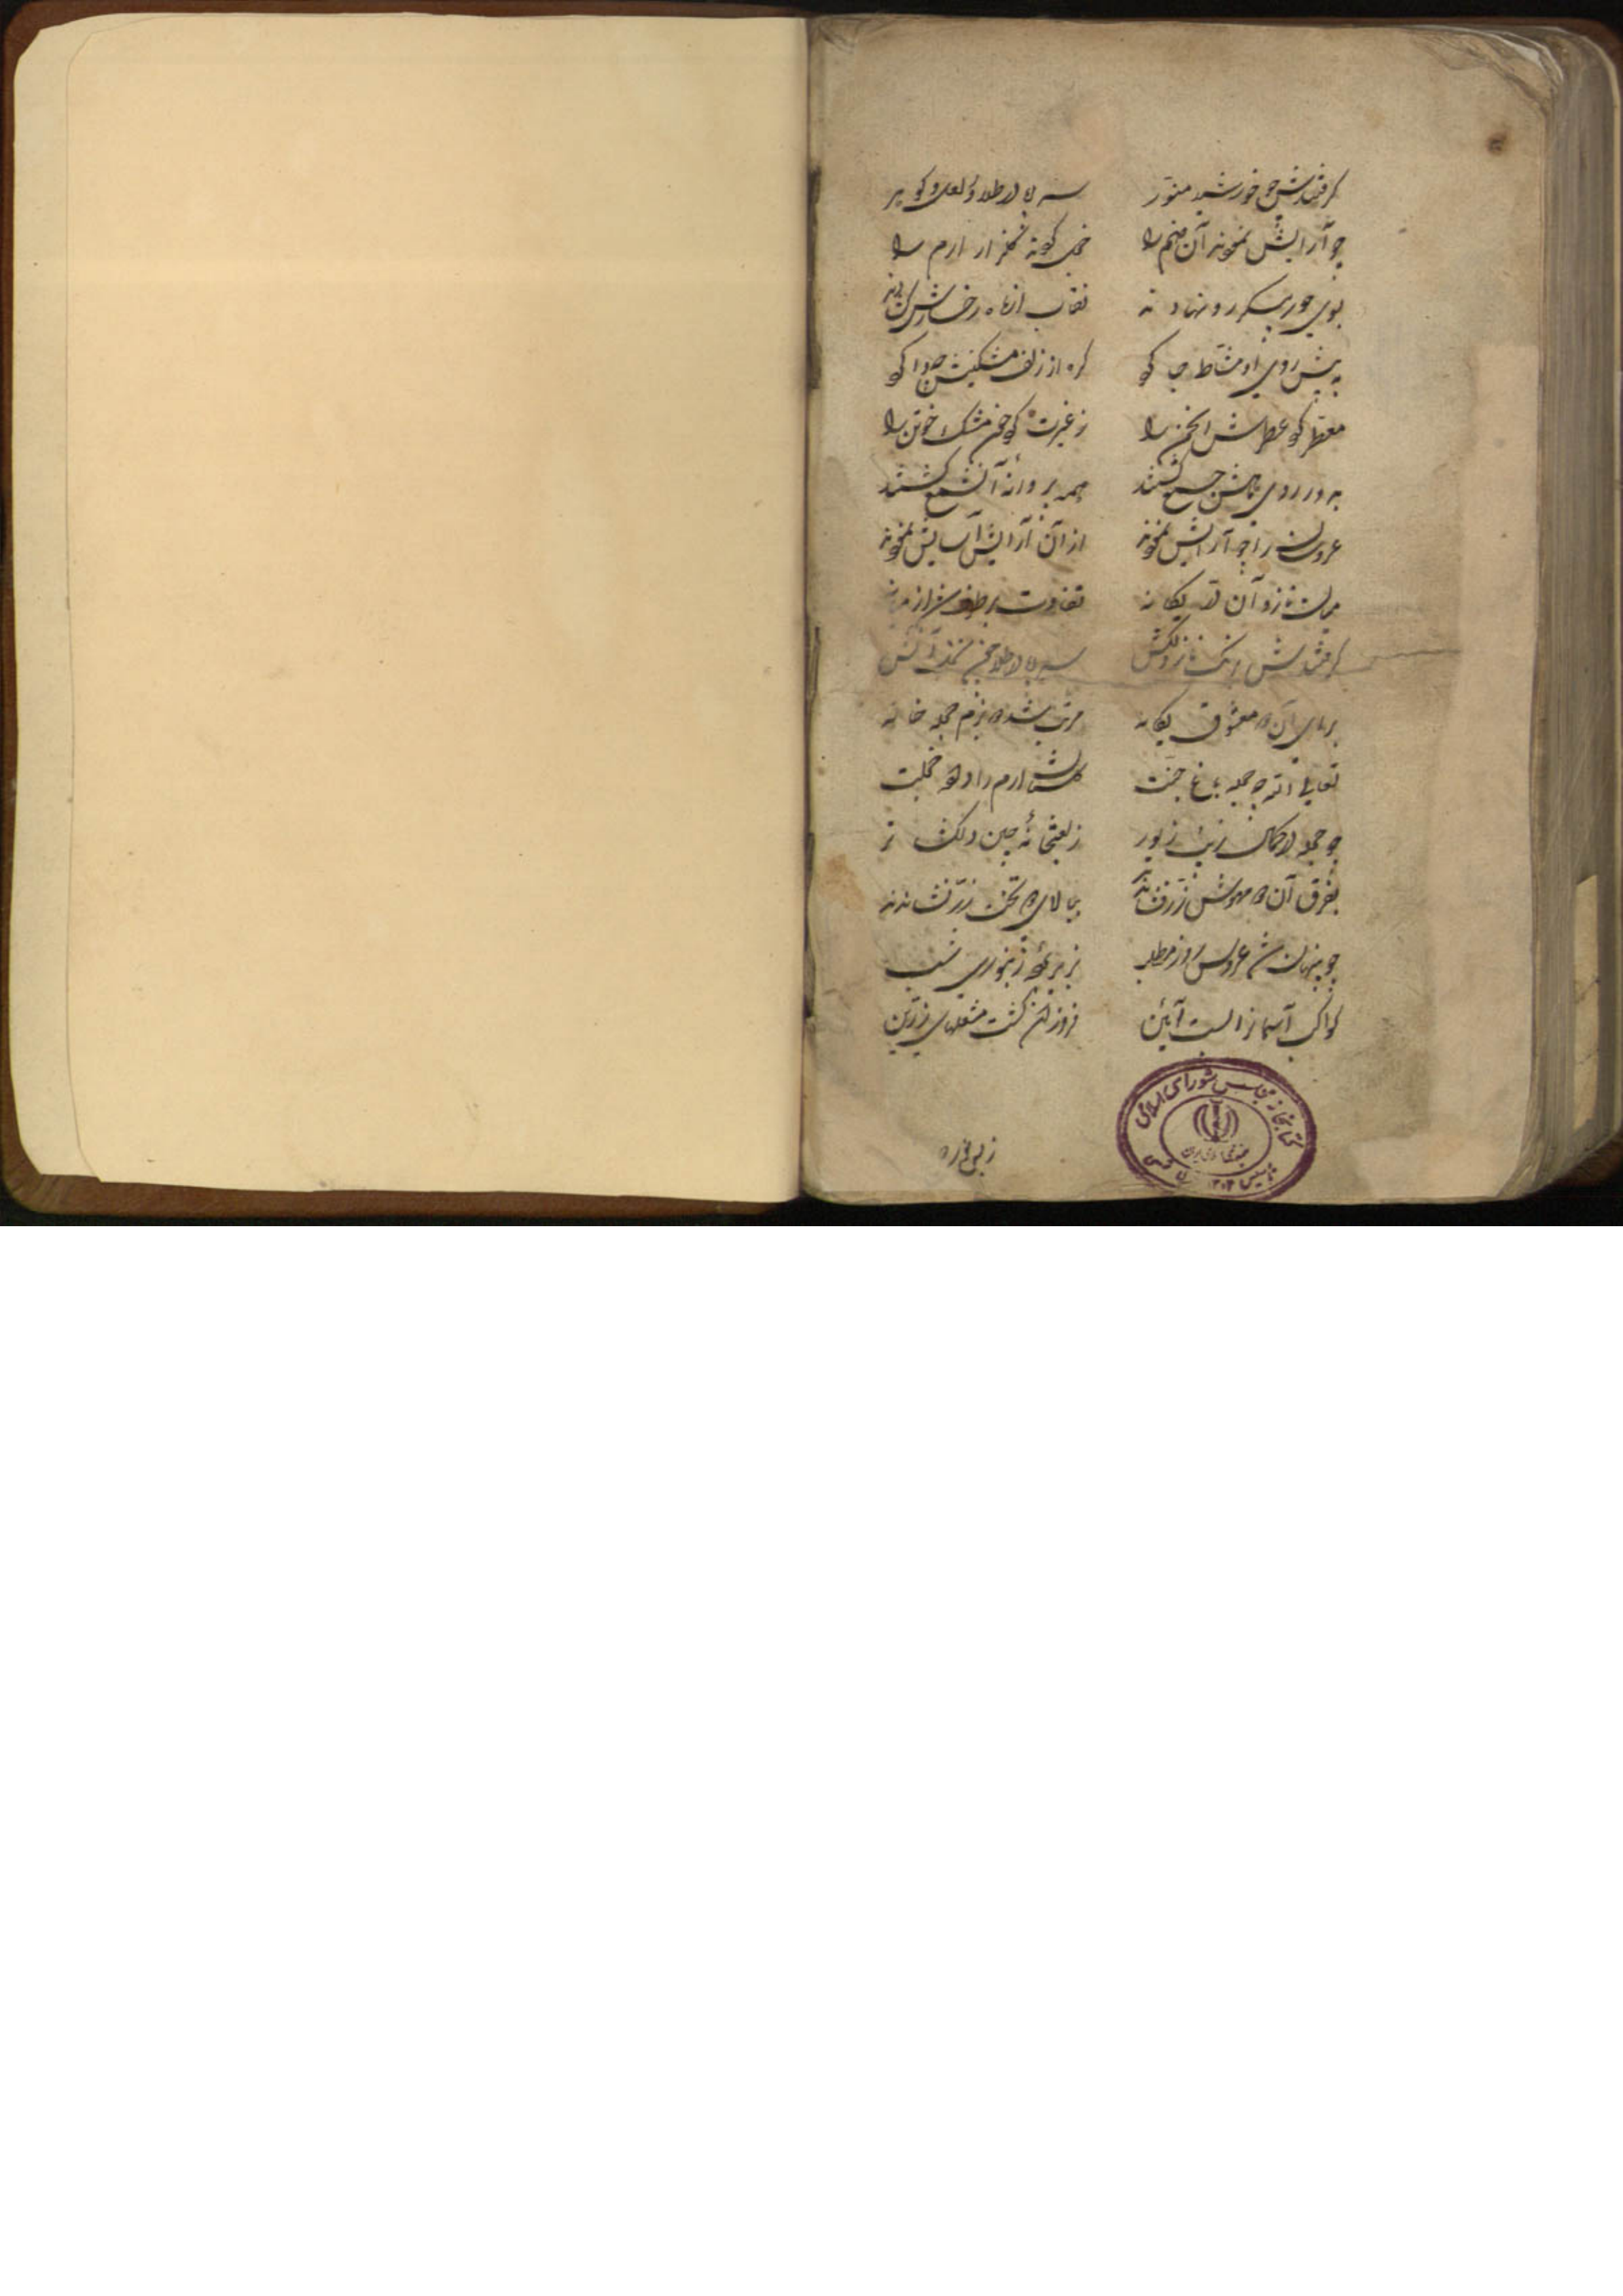 گرفتندش چو خورشید منور سراپا در طلا و لعل و گوهر
چو آرایش نمودند آن صنم را خجل کردند گلزار ارم را
بسوی حور پیکر رو نهادند نقاب از ماه رخسارش گشادند
به پیش روی او مشاطه جا کرد گره از زلف مشکینش وا کرد
معطر کرد عطرش انجمن را ز غیرت کرد خون مشک ختن را
به دور روی ماهش جمع گشتند همه پروانه آن شمع گشتند
عروسان را چو آرایش نمودند از آن آرایش آسایش نمودند
میان نازو آن قد یگانه تفاوت برطرف شد از میانه
گرفتندش سراپا در طلا چون
برای آن دو معشوق یگانه مرتب شد دو بزم حجله خانه
تعالی الله چه حجله باغ جنت گلستان ارم را داده خجلت
چو حجله در کمال زیب و زیور ز لعبتخانه چین دلگشاتر
بفرق آن دو مهوش زر فشاندند ببالای دو تخت زر نشاندند
چو پنهان شد عروس روز مطلب بزیر پرده زنبوری شب
کواکب آسمان را بست آئین فروزان گشت مشعلهای زرین
کتابخانه مجلس شورای اسلامی
جمهوری اسلامی ایران